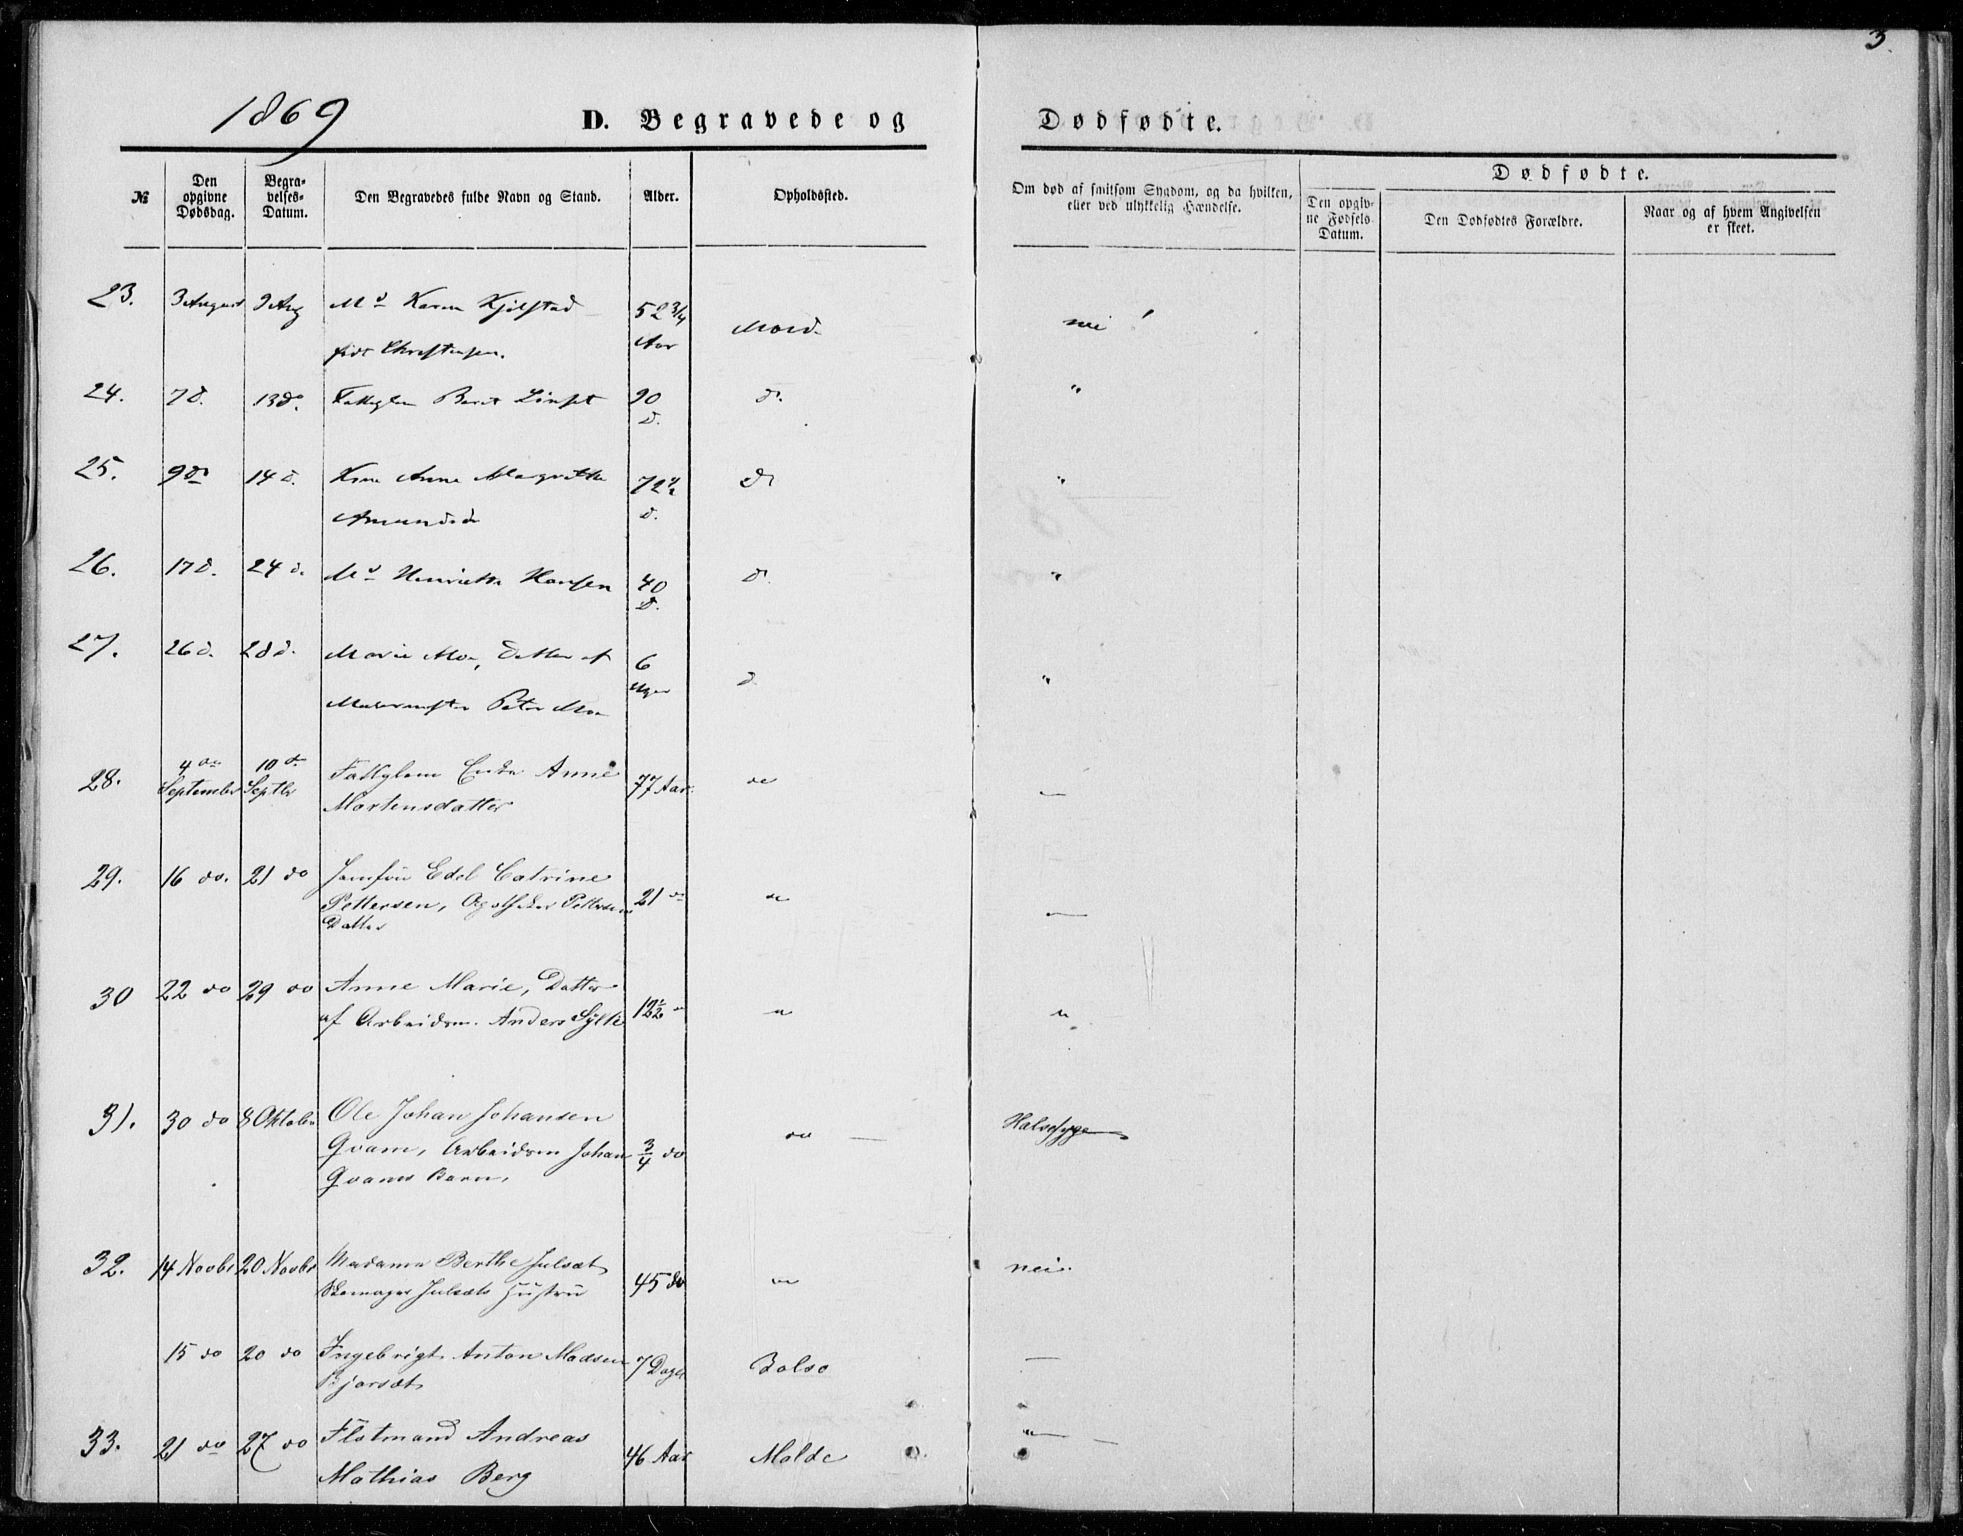 3.
1869
D. Begravede og Dødfødte.
№
Den opgivne Dødsdag.
Begravelses-Datum.
Den Begravedes fulde Navn og Stand.
Alder.
Opholdssted.
Om død af smitsom Sygdom, og da hvilken, eller ved ulykkelig Hændelse.
Dødfødte.
Den opgivne Fødsels Datum.
Den Dødfødtes Forældre.
Naar og af hvem Angivelsen er skeet.
23. 3 August 9 Aug Md Karen Kjølstad 52 3/4 Mold. nei
født Christensen. Aar
24. 7 d. 13 do. Fattiglem Berit 90 do. "
d.
25. 9 do 14 d. Kone Anne Margrethe 72 1/2 do "
Amundsd d.
26. 17 d. 24 d. Md Henriette Hansen 40 do. "
d.
27. 26 d. 28 d. Marie Moe, Datter af 6 d "
Murermester Peter Moe Uger
28. 4de September 10de Septbr Fattiglem Enke Anne 77 Aar. do —
Mortensdatter
29. 16 do. 21 do Jomfru Edel Catrine
Pettersen, Pettersens 21 do do —
Datter
30 22 do 29 do Anne Marie, Datter
af Arbeidsm. Anders Sylte 12 1/2 " " "
31. 30 do 8 Oktober Ole Johan Johansen Halssyge
Qvam, Arbeidsm Johan 3/4 do do —
Qvams Barn.
32. 14 Novbr 20 Novbr Madame Berthe Julsæt nei.
Skomager Julsæts Hustru 45 do do
15 do 20 do Ingebrigt Anton Madsen 7 Dage Bolsø —
Bjorsæt
33. 21 do 27 do Flotmand Andreas 46 Aar Molde " —
Mathias Berg